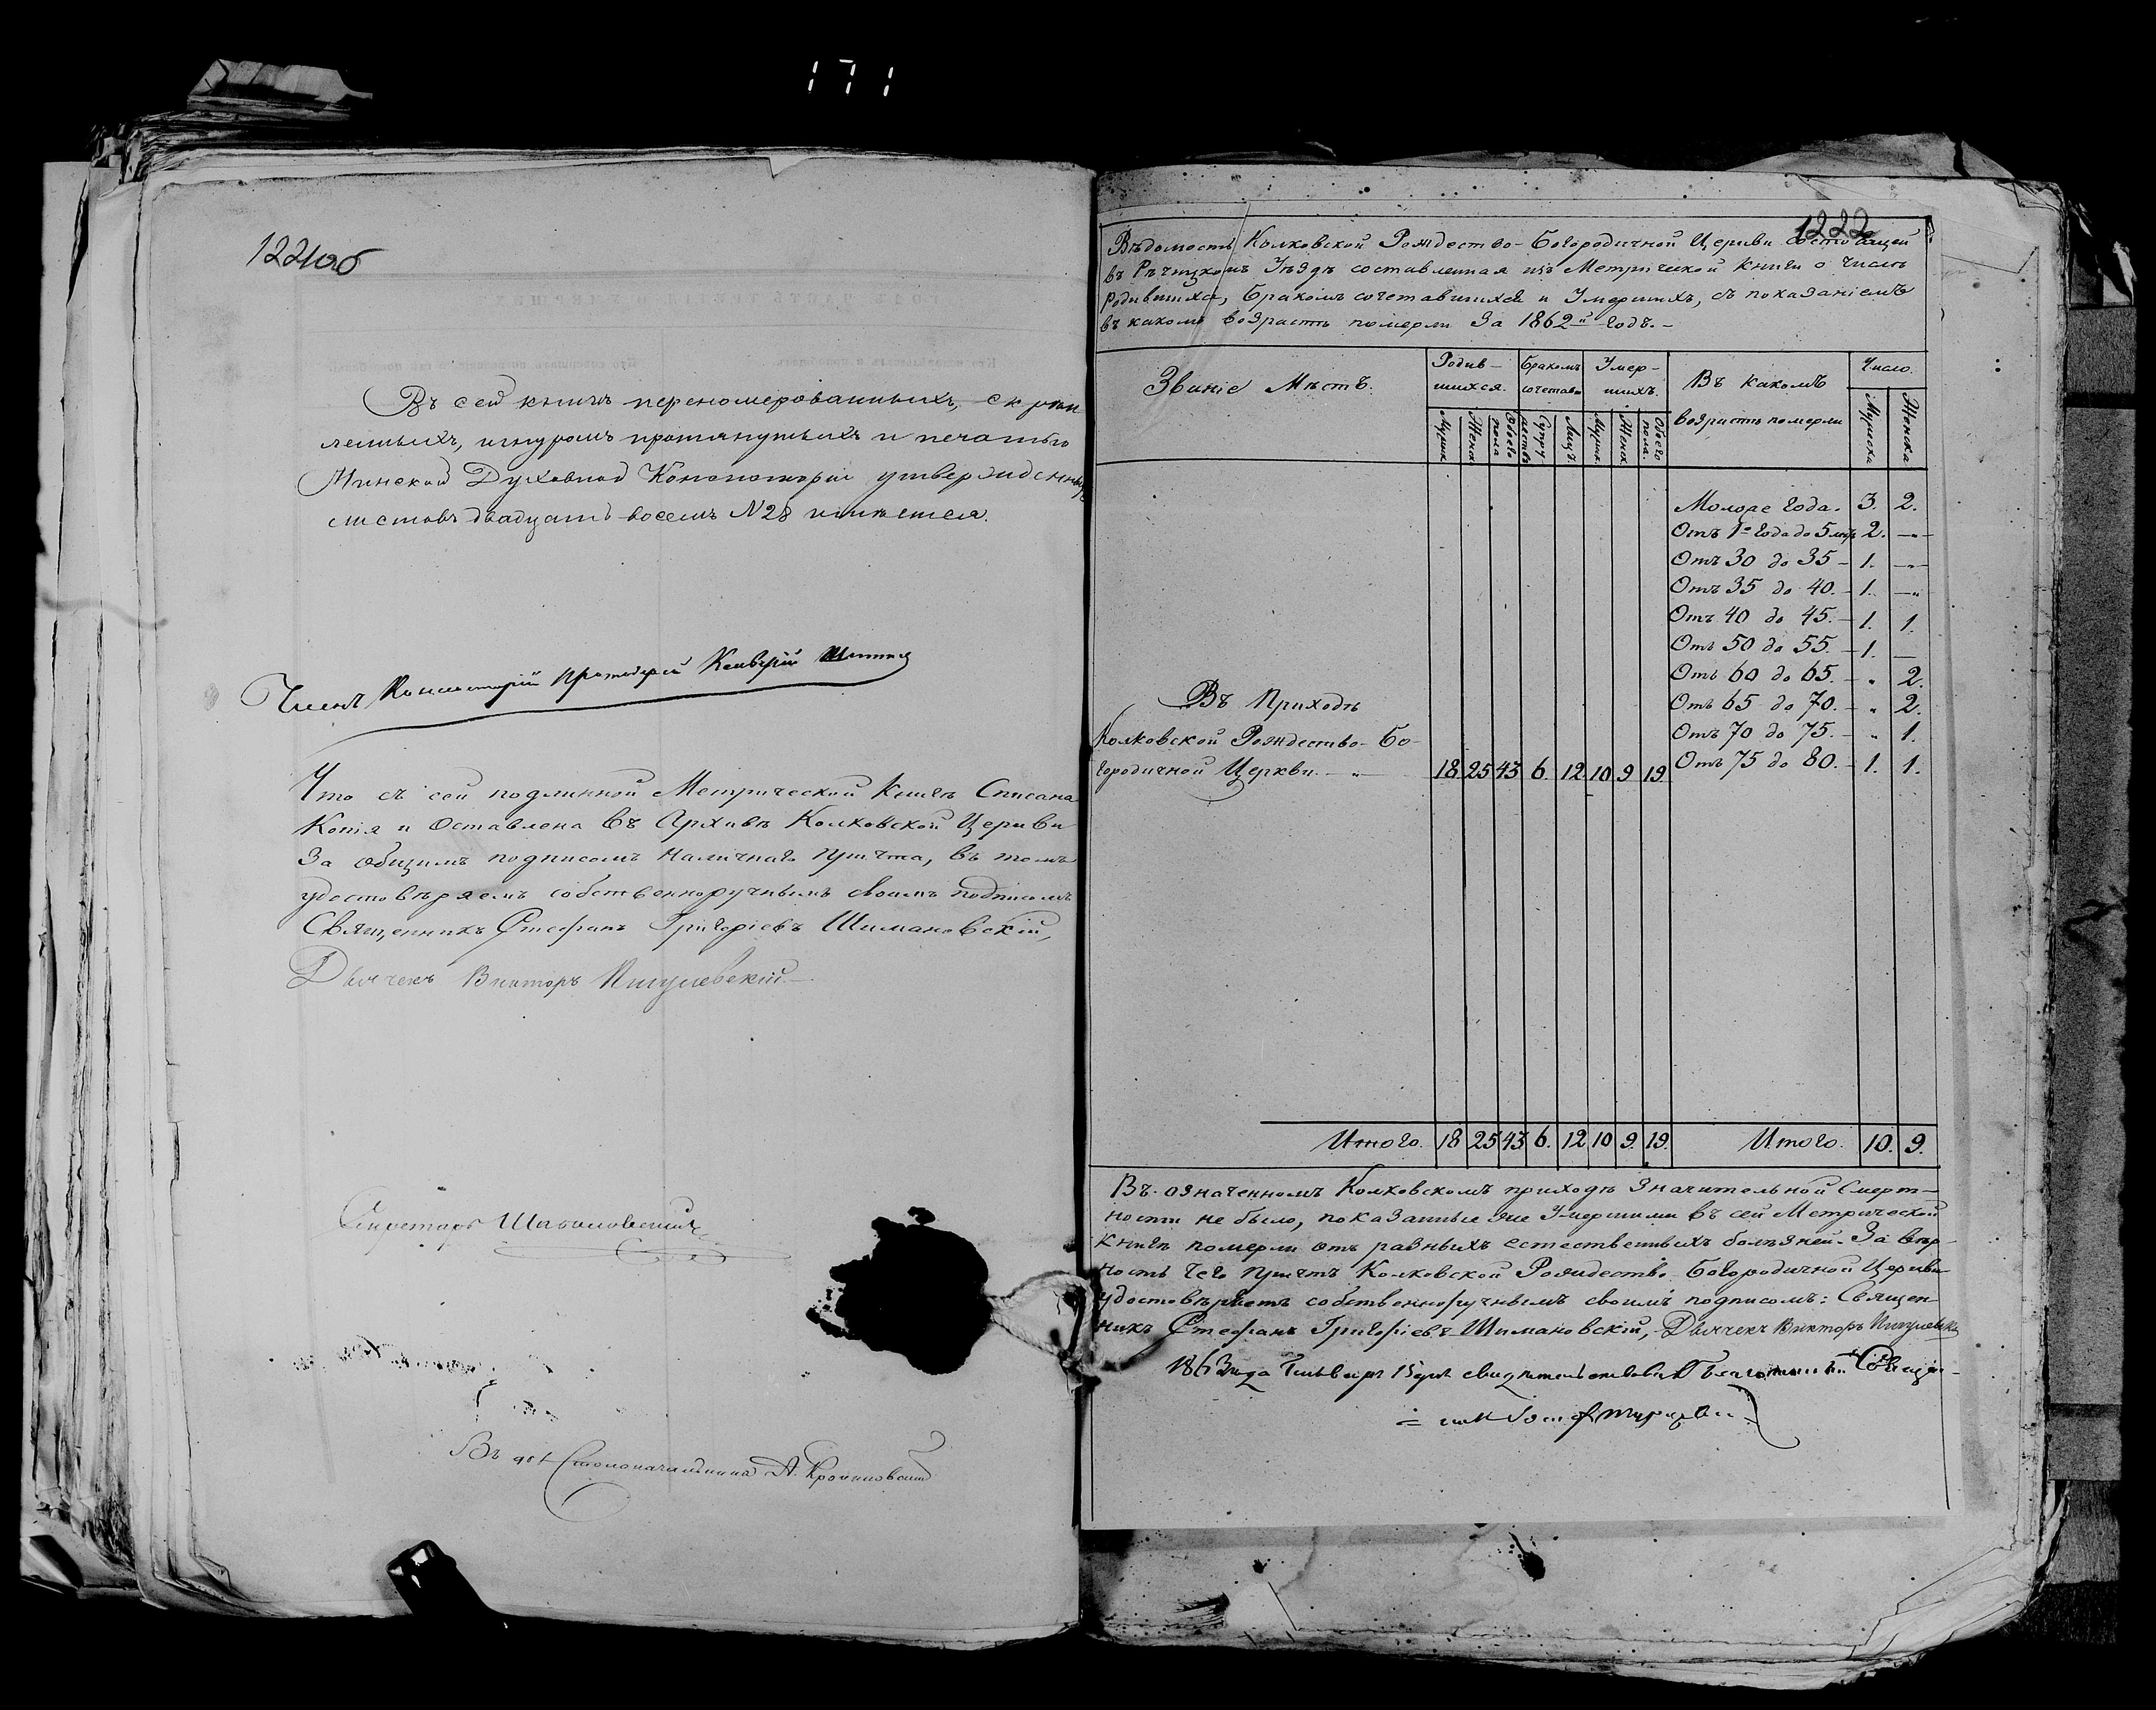 171
1221об
Въ сей книгѣ переномерованныхъ, скрѣп
ленныхъ, шнуромъ протянутыхъ и печатью
Минской Духовной Консисторіи утвержденныхъ
листовъ двадцать восемь N28 имѣется.
Членъ Консисторіи Протоіерей
Что съ сей подлинной Метрической Книги Списана
Копія и Оставлена въ Архивѣ Колковской Церкви
За общимъ подписомъ наличнаго причта, въ томъ
удостовѣряемъ собственноручнымъ своимъ подписомъ
Священникъ Стефанъ Григоріевъ Шимановскій,
Дьячекъ Викторъ Пигулевскій
Секретарь
Столоначальника А.
1222
Вѣдомость Колковской Рождество-Богородичной Церкви состоящей
въ Рѣчицкомъ Уѣздѣ составленная изъ Метрической книги о числѣ
родившихся, бракомъ сочетавшихся и Умершихъ, съ показаніемъ
въ какомъ возрастѣ померли за 1862й годъ.
Званіе Мѣстъ. Родив-шихся. Бракомъ сочетав Умер-шихъ. Въ какомъ возрастѣ померли Число.
Мужск. Женск. Обоего пола Супружествъ Лицъ. Мужск. Женск. Обоего пола. Мужска Женска
Моложе года. 3. 2.
Отъ 1го года до 5 лѣтъ 2. —„—
Отъ 30 до 35 — 1. —„—
Отъ 35 до 40. — 1. —„
Отъ 40 до 45. — 1. 1.
Отъ 50 до 55. — 1. —
Отъ 60 до 65. — „ 2.
Отъ 65 до 70. — „ 2.
Отъ 70 до 75. — „ 1.
Отъ 75 до 80. — 1. 1.
Въ Приходѣ
Колковской Рождество-Бо-
городичной Церкви. —„— 18. 25 43 6. 12. 10 9. 19.
Итого. 18 25 43 6. 12 10 9. 19. Итого. 10. 9.
Въ означенномъ Колковскомъ приходѣ значительной смерт-
ности не было, показанные же Умершими въ сей Метрической
Книгѣ померли отъ разныхъ естественныхъ болѣзней. За вѣр-
ность чего причтъ Колковской Рождество-Богородичной Церкви
удостовѣряетъ собственноручнымъ своимъ подписомъ: Священ-
никъ Стефанъ Григоріевъ Шимановскій, Дьячекъ Викторъ Пигулевскі
1863 года Генваря 15 дня свидѣтельствовалъ Благочинный Священ-